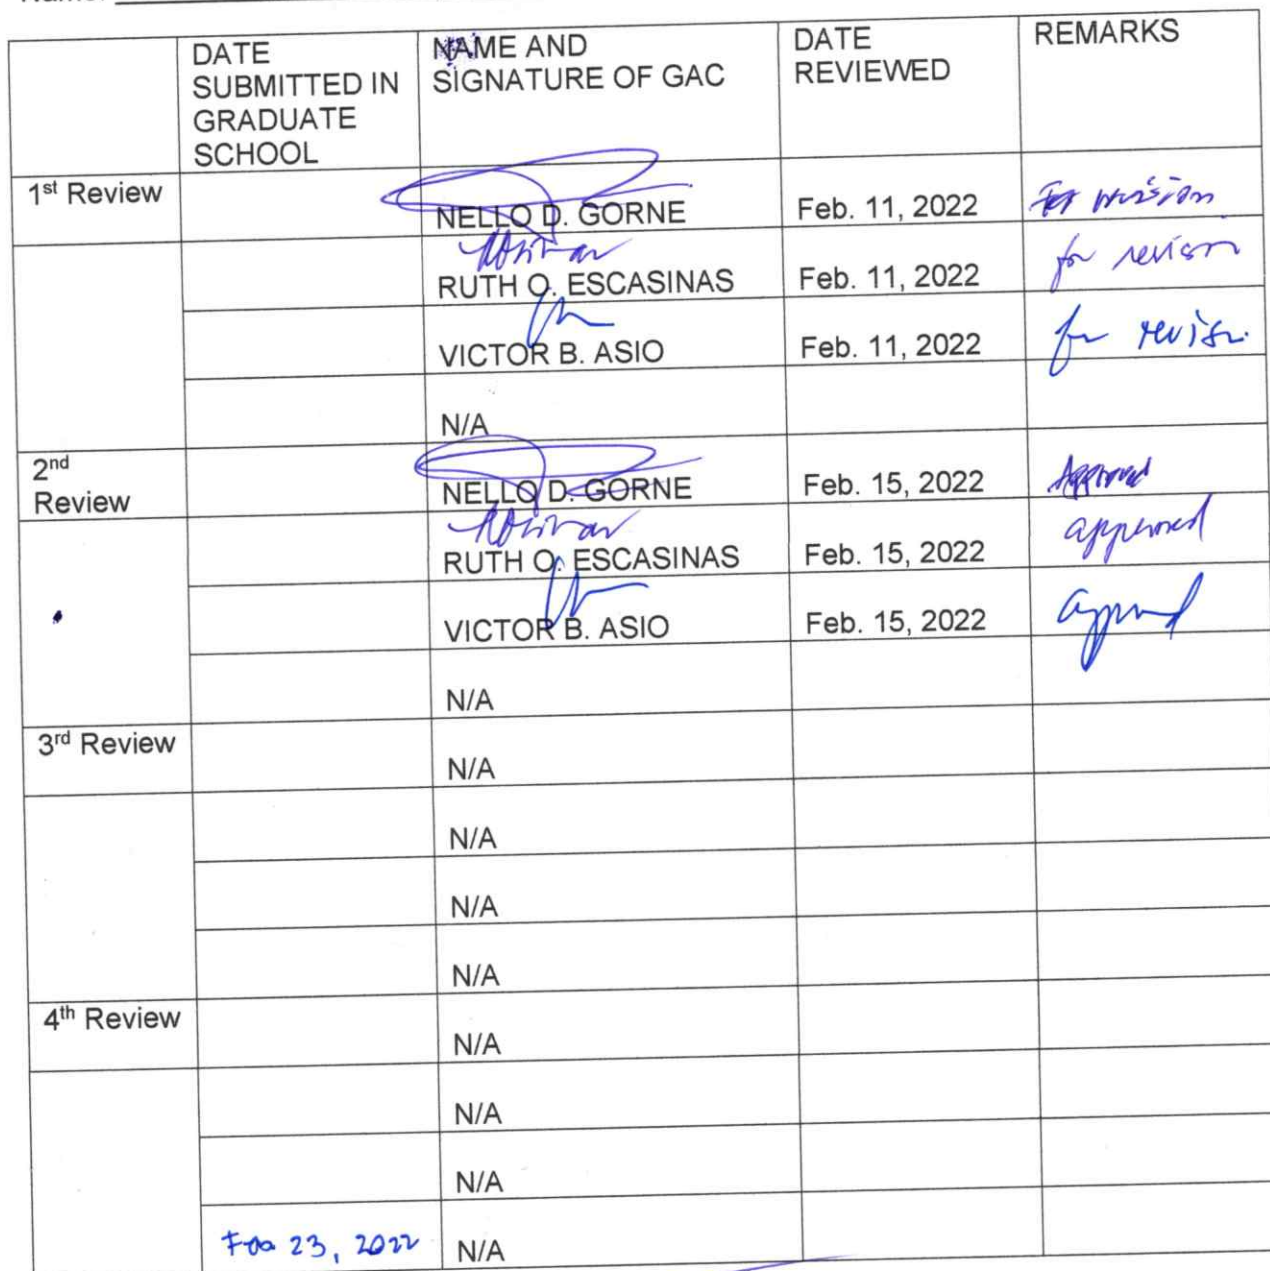 DATE SUBMITTED IN GRADUATE SCHOOL
NAME AND SIGNATURE OF GAC
DATE REVIEWED
REMARKS
1st Review
NELLO D. GORNE
Feb. 11, 2022
For revision
RUTH O. ESCASINAS
Feb. 11, 2022
for revision
VICTOR B. ASIO
Feb. 11, 2022
for revisi.
N/A
2nd Review
NELLO D. GORNE
Feb. 15, 2022
Approved
RUTH O. ESCASINAS
Feb. 15, 2022
approved
VICTOR B. ASIO
Feb. 15, 2022
approved
N/A
3rd Review
N/A
N/A
N/A
N/A
4th Review
N/A
N/A
N/A
23, 2022
N/A